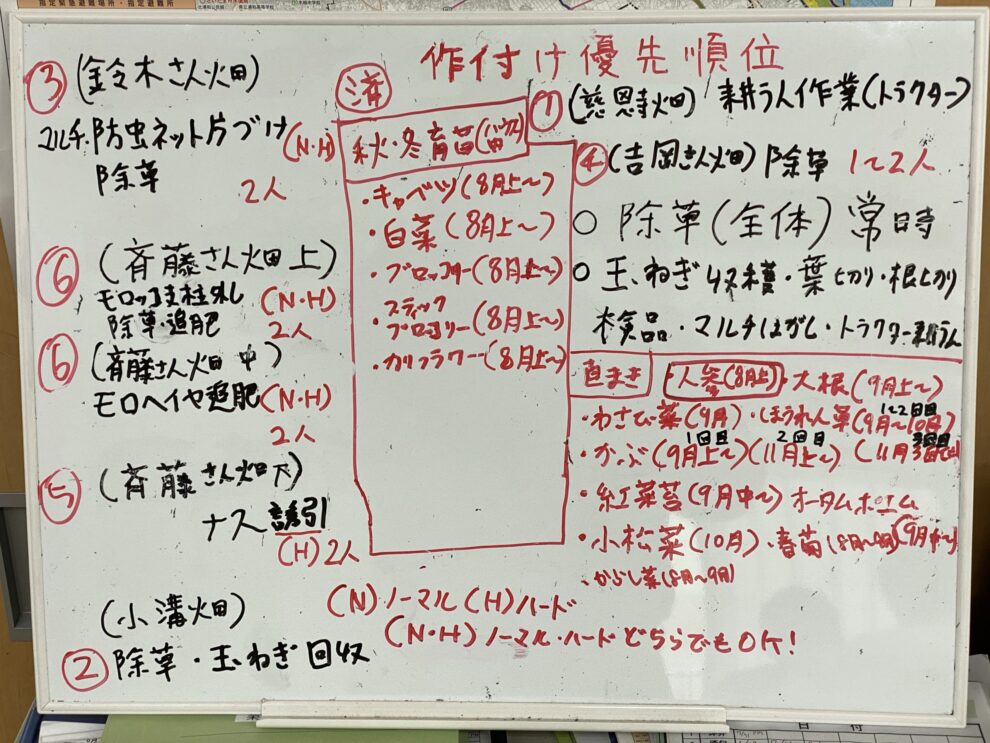 作付け優先順位
③ (鈴木さん畑)
マルチ・防虫ネット片づけ (N・H)
除草 2人
⑥ (斉藤さん畑上)
モロッコ支柱外し (N・H)
除草・追肥 2人
⑥ (斉藤さん畑 中)
モロヘイヤ追肥 (N・H)
2人
⑤ (斉藤さん畑下)
ナス誘引
(H) 2人
(小溝畑)
② 除草・玉ねぎ回収
済
秋・冬育苗(ハウス)
・キャベツ(8月上〜)
・白菜(8月上〜)
・ブロッコリー(8月上〜)
・スティック
ブロッコリー(8月上〜)
・カリフラワー(8月上〜)
① (慈恩寺畑) 耕うん作業(トラクター)
④ (吉岡さん畑) 除草 1〜2人
○ 除草(全体) 常時
○ 玉ねぎ収穫・葉切り・根しより
検品・マルチはがし・トラクター耕うん
直まき 人参(8月上) 大根(9月上〜)
・わさび菜(9月)・ほうれん草(9月〜10月) 1〜2回目
・かぶ(9月上〜) 1回目 (11月上〜) 2回目 (11月 3回目
・紅菜苔(9月中〜) オータムポエム (9月中〜)
・小松菜(10月)・春菊(8月〜9月)
・からし菜(8月〜9月)
(N) ノーマル (H) ハード
(N・H) ノーマル・ハードどちらでもOK!